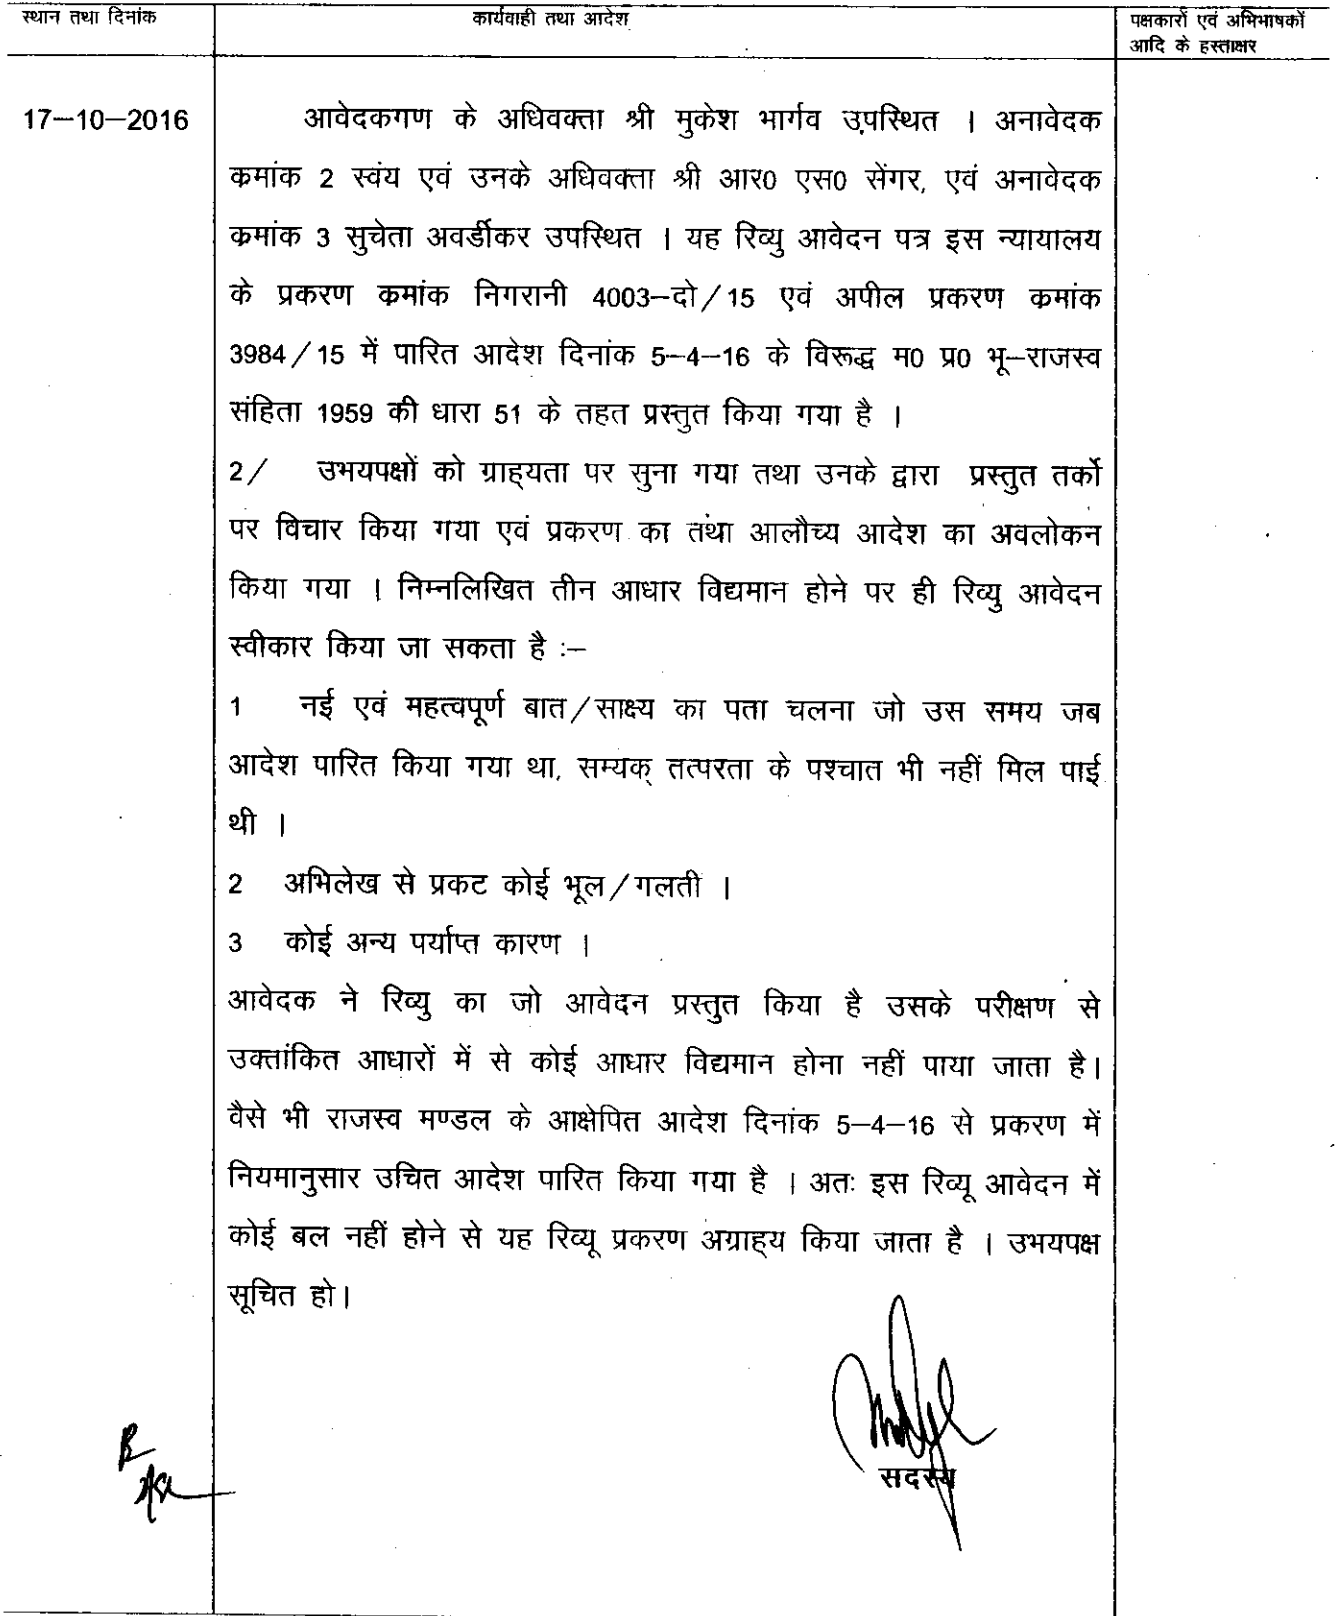 स्थान तथा दिनांक
कार्यवाही तथा आदेश
पक्षकारों एवं अभिभाषकों
आदि के हस्ताक्षर
17–10–2016
आवेदकगण के अधिवक्ता श्री मुकेश भार्गव उपस्थित । अनावेदक
कमांक 2 स्वंय एवं उनके अधिवक्ता श्री आर0 एस0 सेंगर, एवं अनावेदक
कमांक 3 सुचेता अवर्डीकर उपस्थित । यह रिव्यु आवेदन पत्र इस न्यायालय
के प्रकरण कमांक निगरानी 4003–दो/15 एवं अपील प्रकरण कमांक
3984/15 में पारित आदेश दिनांक 5–4–16 के विरूद्ध म0 प्र0 भू–राजस्व
संहिता 1959 की धारा 51 के तहत प्रस्तुत किया गया है ।
2/ उभयपक्षों को ग्राह्यता पर सुना गया तथा उनके द्वारा प्रस्तुत तर्को
पर विचार किया गया एवं प्रकरण का तथा आलौच्य आदेश का अवलोकन
किया गया । निम्नलिखित तीन आधार विद्यमान होने पर ही रिव्यु आवेदन
स्वीकार किया जा सकता है :–
1 नई एवं महत्वपूर्ण बात/साक्ष्य का पता चलना जो उस समय जब
आदेश पारित किया गया था, सम्यक् तत्परता के पश्चात भी नहीं मिल पाई
थी ।
2 अभिलेख से प्रकट कोई भूल/गलती ।
3 कोई अन्य पर्याप्त कारण ।
आवेदक ने रिव्यु का जो आवेदन प्रस्तुत किया है उसके परीक्षण से
उक्तांकित आधारों में से कोई आधार विद्यमान होना नहीं पाया जाता है।
वैसे भी राजस्व मण्डल के आक्षेपित आदेश दिनांक 5–4–16 से प्रकरण में
नियमानुसार उचित आदेश पारित किया गया है । अतः इस रिव्यू आवेदन में
कोई बल नहीं होने से यह रिव्यू प्रकरण अग्राह्य किया जाता है । उभयपक्ष
सूचित हो।
सदस्य